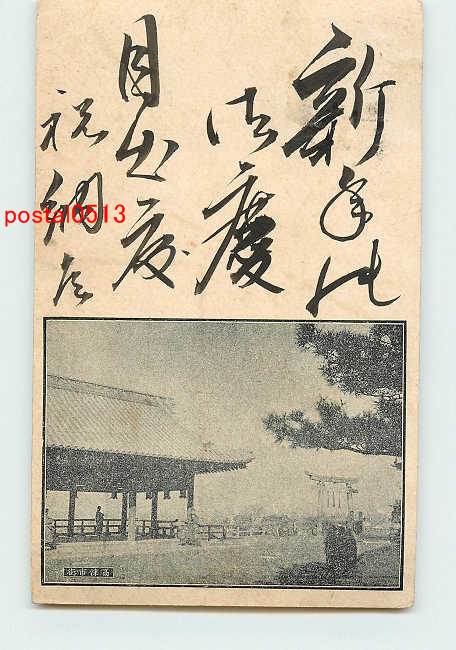 新年の
御慶
目出度
祝納候
postal6513